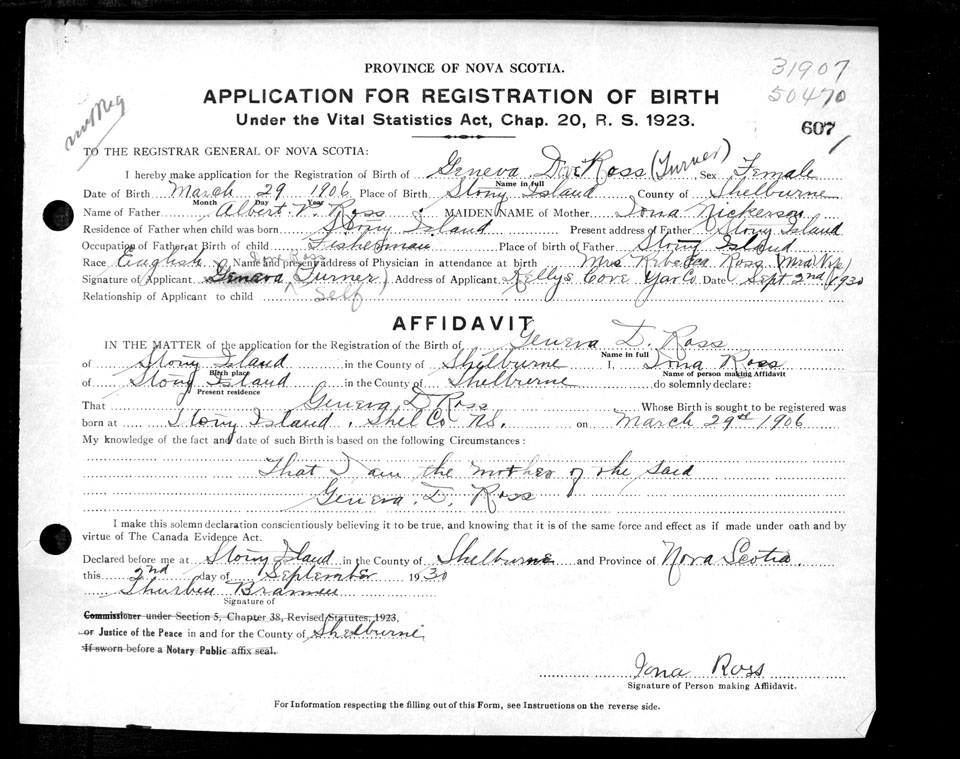 31907
50470
607
PROVINCE OF NOVA SCOTIA.
APPLICATION FOR REGISTRATION OF BIRTH
Under the Vital Statistics Act, Chap. 20, R. S. 1923.
TO THE REGISTRAR GENERAL OF NOVA SCOTIA:
I hereby make application for Registration of Birth of Geneva Ross (Turner) Sex Female
Name in full
Date of Birth March 29 1906 Place of Birth Stony Island County of Shelburne
Month Day Year
Name of Father Albert V. Ross MAIDEN NAME of Mother Iona Nickerson
Residence of Father when child was born Stony Island Present address of Father Stony Island
Occupation of Father at Birth of child Fisherman Place of birth of Father Stony Island
Race English Name and present address of Physician in attendance at birth Mrs Rebecca Ross (Mid Wife)
Signature of Applicant Geneva Ross Turner Address of Applicant Kellys Cove Yar Co Date Sept 2nd 1930
Relationship of Applicant to child Self
AFFIDAVIT
IN THE MATTER of the application for the Registration of the Birth of Geneva D. Ross
Name in full
of Stony Island in the County of Shelburne I, Iona Ross
Birth place Name of person making Affidavit
of Stony Island in the County of Shelburne do solemnly declare:
Present residence
That Geneva D Ross Whose Birth is sought to be registered was
born at Stony Island, Shel Co NS. on March 29th 1906
My knowledge of the fact and date of such Birth is based on the following Circumstances:
That I am the mother of the said
Geneva. D. Ross
I make this solemn declaration conscientiously believing it to be true, and knowing that it is of the same force and effect as if made under oath and by
virtue of The Canada Evidence Act.
Declared before me at Stony Island in the County of Shelburne and Province of Nova Scotia
this 2nd day of September 1930
Signature of
Commissioner under Section 5, Chapter 38, Revised Statutes, 1923,
or Justice of the Peace in and for the County of Shelburne
If sworn before a Notary Public affix seal.
Iona Ross
Signature of Person making Affidavit.
For Information respecting the filling out of this Form, see Instructions on the reverse side.